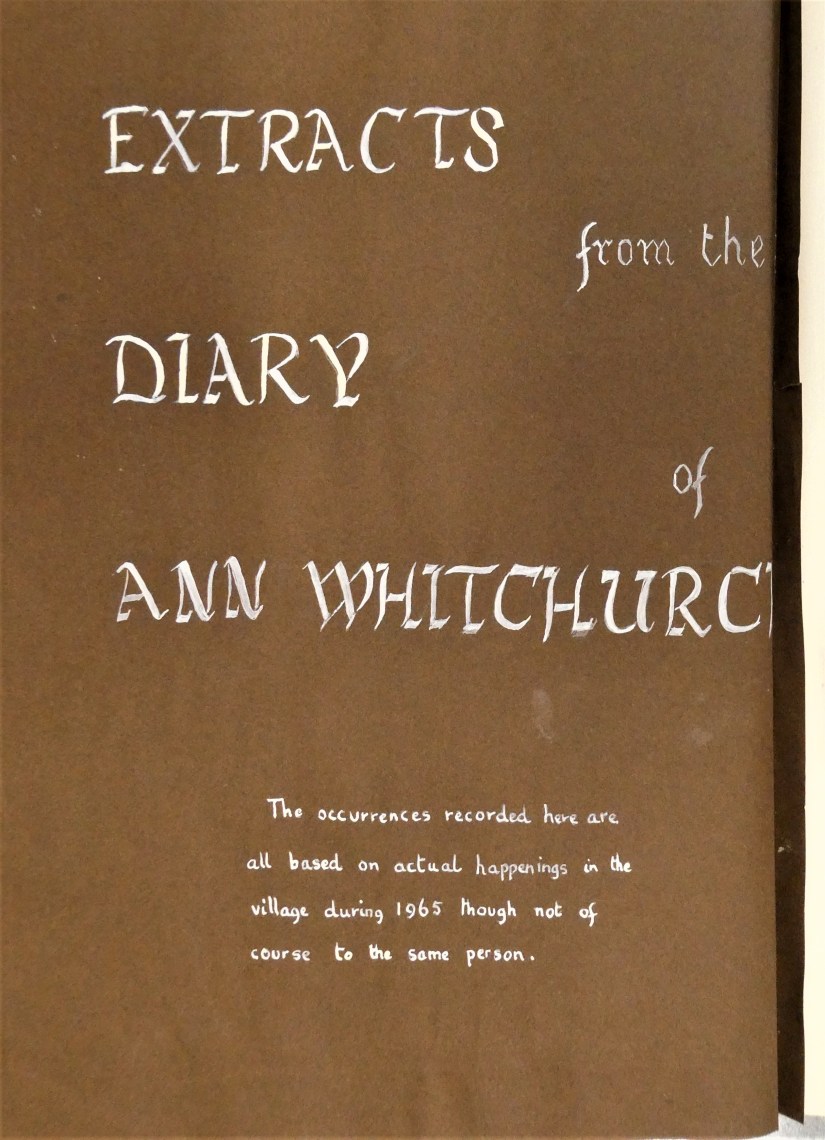 EXTRACTS
from the
DIARY
of
ANN WHITCHURCH
The occurrences recorded here are
all based on actual happenings in the
village during 1965 though not of
course to the same person.